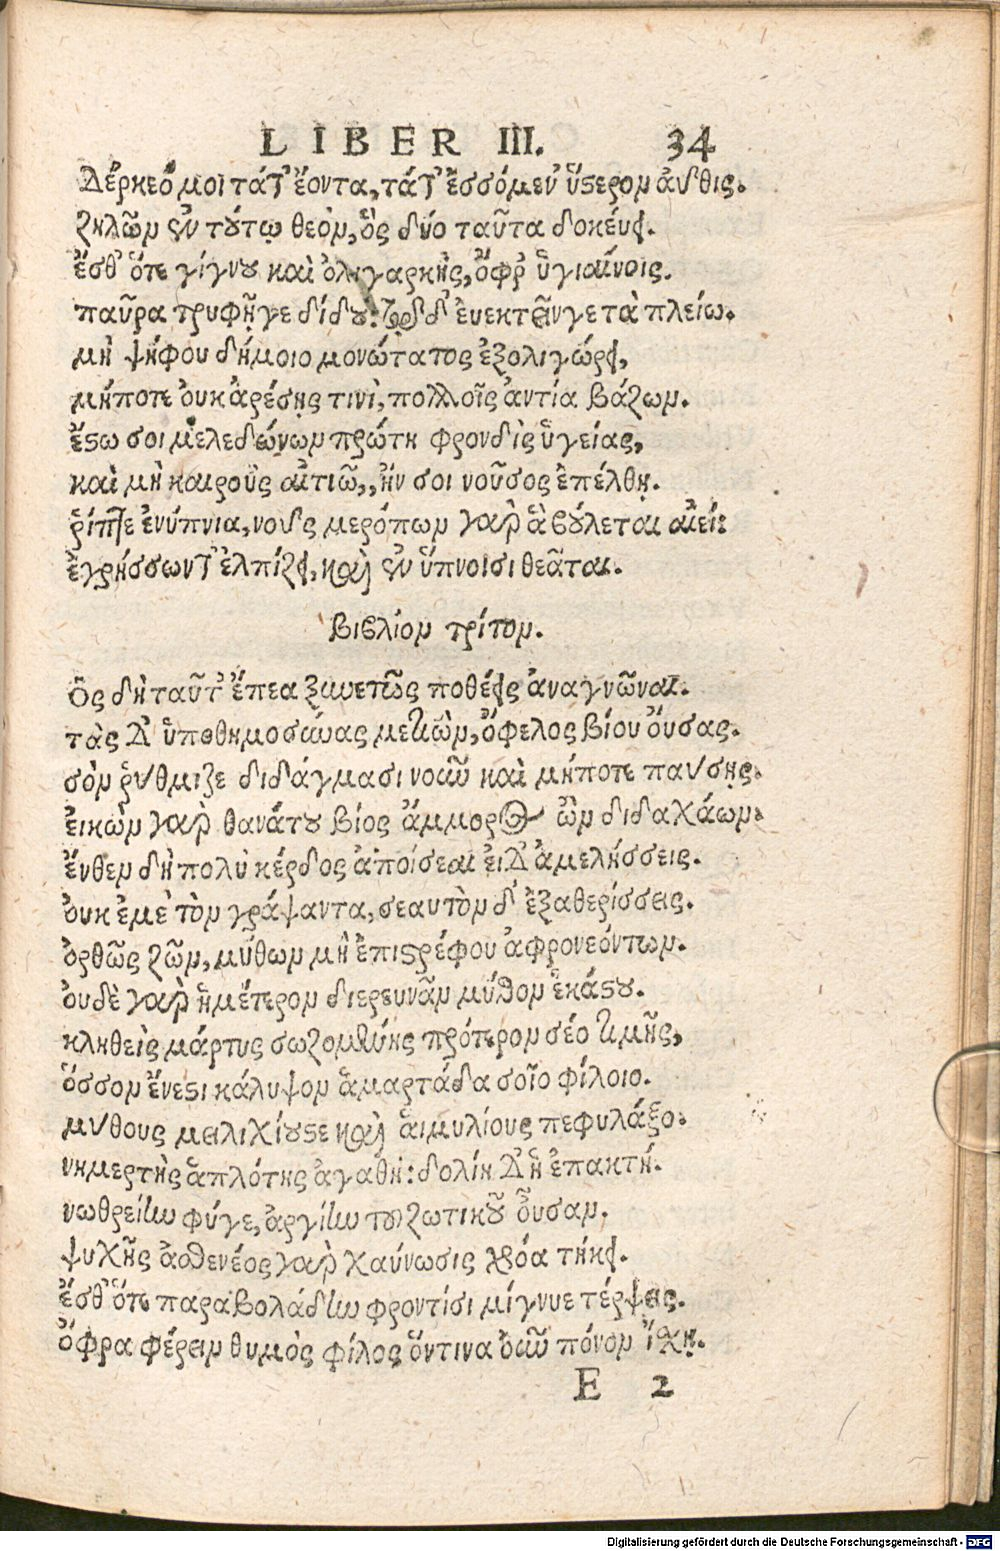 LIBER III. 34
Δέρκεό μοι τά τ' ἔοντα, τά τ' ἐσσόμεν' ὕστερον ἀυθις.
ζηλῶν ὢν τούτῳ θεὸν, ὃς δύο ταῦτα δοκέυει.
ἔσθ' ὅτε γίγνου καὶ ὀλιγαρκὴς, ὄφρ' ὑγιαίνοις.
παῦρα τρυφῇγε δίδου: τῷ δ' ἐυεκτεῖν γε τὰ πλείω.
μὴ ψήφου δήμοιο μονώτατος ἐξολιγώρει,
μήποτε ὀυκ ἀρέσῃς τινὶ, πολλοῖς ἀντία βάζων.
ἔστω σοι μελεδώνων πρώτη φρονδὶς ὑγείας,
καὶ μὴ καιροὺς αἰτιῶ, ἤν σοι νοῦσος ἐπέλθῃ.
ῥίπτε ἐνύπνια, νοῦς μερόπων γὰρ ἃ βούλεται αἰεί:
ἐγρήσσων τ' ἐλπίζει, καὶ ἐν ὕπνοισι θεᾶται.
Βιβλίον τρίτον.
Ὃς δὴ ταῦτ' ἔπεα ξυνετῶς ποθέεις ἀναγνῶναι.
τὰς δ' ὑποθημοσύνας μετιὼν, ὄφελος βίου ὄυσας.
σὸν ῥύθμιζε διδάγμασι νοῦν καὶ μήποτε παύσῃς.
ἐικὼν γὰρ θανάτου βίος ἄμμορος ὢν διδαχάων.
ἔνθεν δὴ πολὺ κέρδος ἀποίσεαι ἐι δ' ἀμελήσσεις.
ὀυκ ἐμὲ τὸν γράψαντα, σεαυτὸν δ' ἐξαθερίσσεις.
ὀρθῶς ζῶν, μύθων μὴ ἐπιστρέφου ἀφρονεόντων.
ὀυδὲ γὰρ ἡμέτερον διερευνᾶν μύθον ἑκάστου.
κληθεὶς μάρτυς σωζομένης πρότερον σέο τιμῆς,
ὅσσον ἔνεστι κάλυψον ἁμαρτάδα σοῖο φίλοιο.
μύθους μειλιχίουστε καὶ αἱμυλίους πεφυλάξο.
νημερτὴς ἁπλότης ἀγαθή: δολίη δ' ἡ ἐπακτή.
νωθρείην φύγε, ἀργίην του ζωτικοῦ ὄυσαν.
ψυχῆς ἀσθενέος γὰρ χαύνωσις χρόα τήκει.
ἔσθ' ὅτε παραβολάδην φροντίσι μίγνυε τέρψεις.
ὄφρα φέρειν θυμὸς φίλος ὅντινα ὀῦν πόνον ἴσχῃ.
E 2
Digitalisierung gefördert durch die Deutsche Forschungsgemeinschaft - DFG